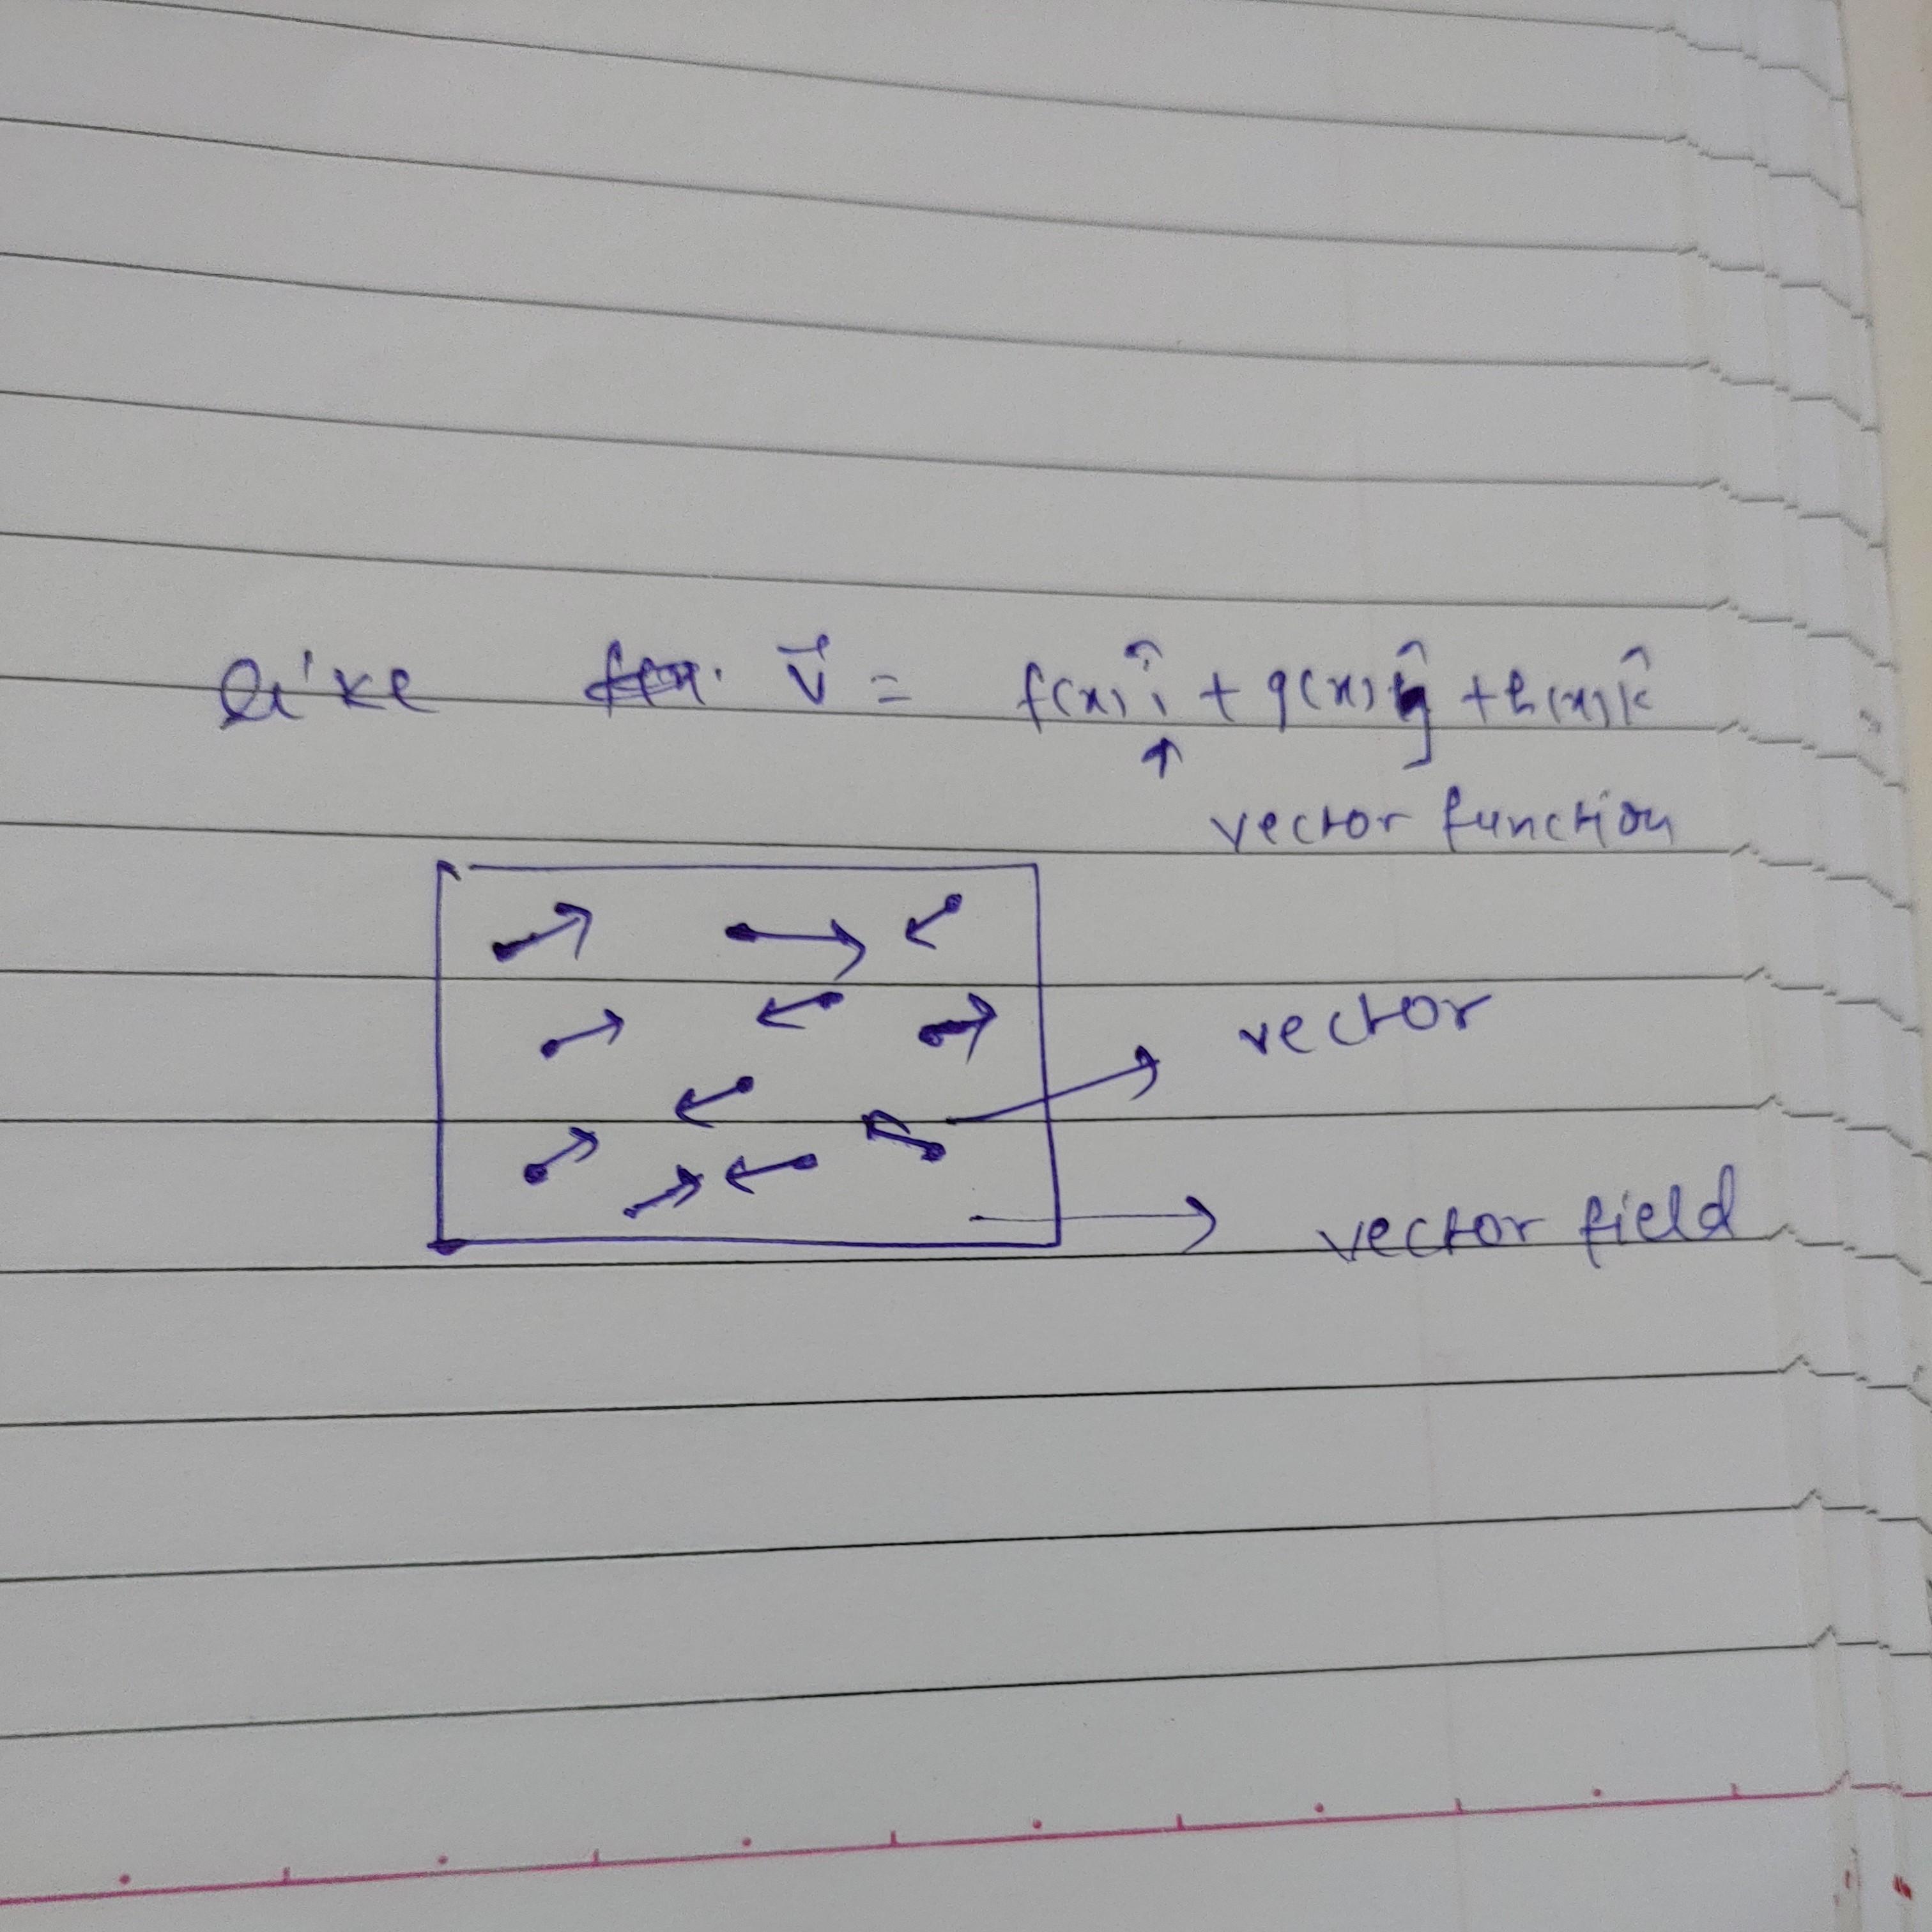 like v⃗ = f(x) î + g(x) ĵ + h(x) k̂
↑
vector function
vector
vector field